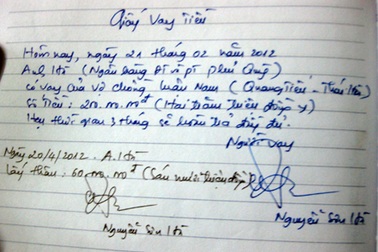 Giấy Vay Tiền
Hôm nay, ngày 21 tháng 02 năm 2012
Anh Hà (Ngân hàng Phú Quý)
có vay của vợ chồng Luân Nam (Quang Tiến - Thái Hòa)
Số Tiền: 200.m.mđ (Hai trăm triệu đồng)
Hẹn thời gian 3 tháng sẽ hoàn trả đầy đủ.
Người vay
Ngày 20/4/2012. A. Hà
lấy thêm: 60.m.mđ (Sáu mươi triệu đồng)
Nguyễn Sơn Hà
Nguyễn Sơn Hà